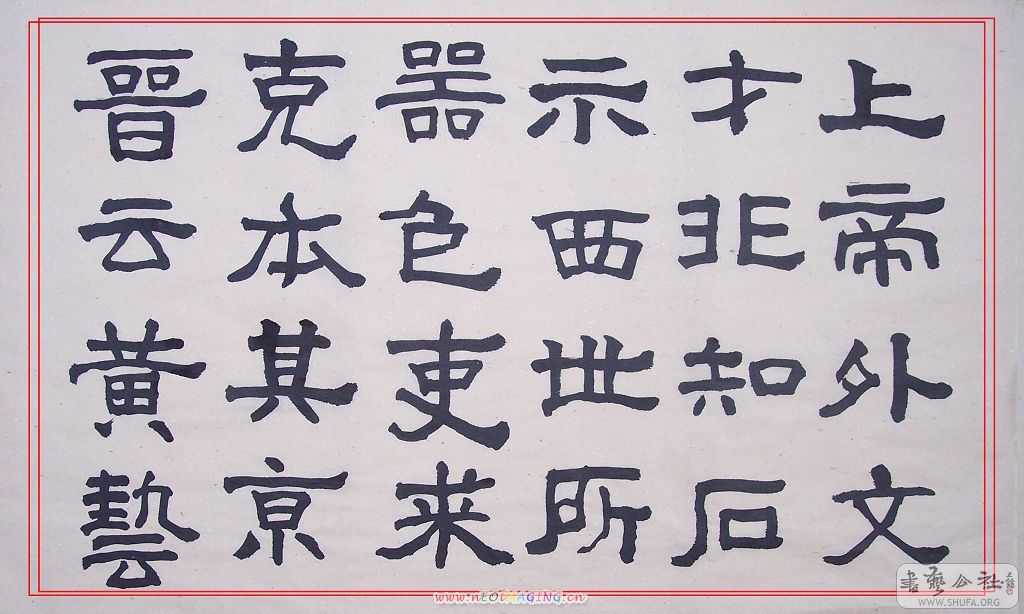 上帝外文
才非知石
示西世所
器色吏来
克本其京
晉云黃藝
書藝公社
WWW.SHUFA.ORG
www.nEOIMAGING.cn